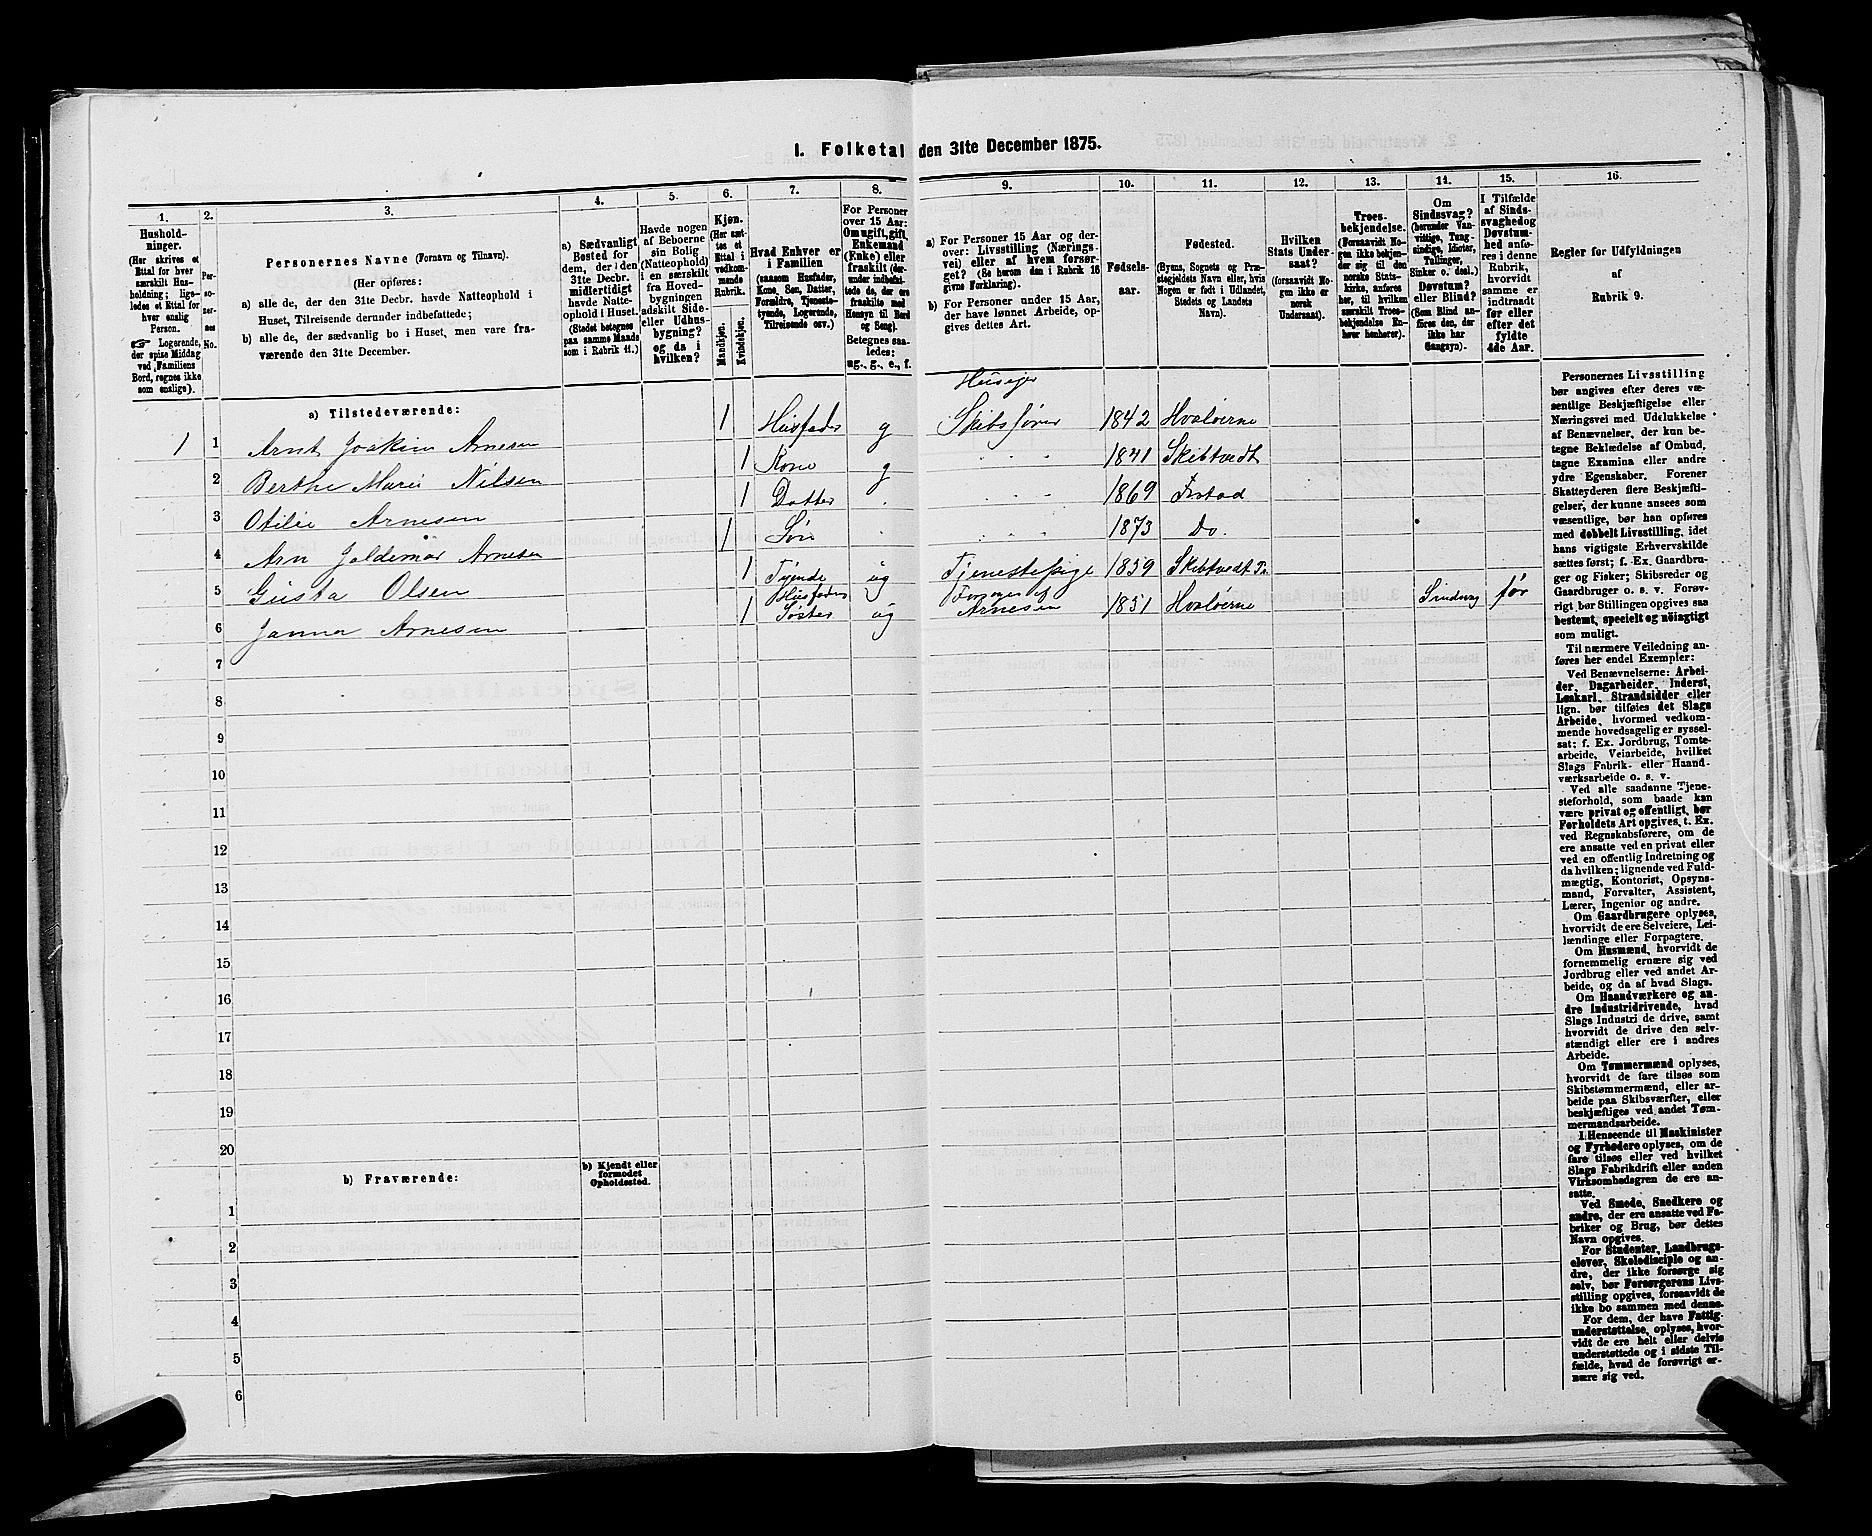 I. Folketal den 31te December 1875.
1.
2.
3.
4.
5.
6.
7.
8.
9.
10.
11.
12.
13.
14.
15.
16.
Hushold-
ninger.
(Her skrives et
Ettal for hver
særskilt Hus-
holdning; lige-
ledes et Ettal for
hver enslig
Person.
☞ Logerende,
der spise Middag
ved Familiens
Bord, regnes ikke
som enslige).
Per-
so-
ner-
nes
No.
Personernes Navne (Fornavn og Tilnavn).
(Her opføres:
a) alle de, der den 31te Decbr. havde Natteophold i
Huset, Tilreisende derunder indbefattede;
b) alle de, der sædvanlig bo i Huset, men vare fra-
værende den 31te December.
a) Sædvanligt
Bosted for
dem, der i den
31te Decbr.
midlertidigt
havde Natte-
ophold i Huset.
(Stedet betegnes
paa samme Maade
som i Rubrik 11.)
Havde nogen
af Beboerne
sin Bolig
(Natteophold)
i en særskilt
fra Hoved-
bygningen
adskilt Side-
eller Udhus-
bygning?
og da i
hvilken?
Kjøn.
(Her sæt-
tes et
Ettal i
vedkom-
mende
Rubrik.
Mandkjøn.
Kvindekjøn.
Hvad Enhver er
i Familien
(saasom Husfader,
Kone, Søn, Datter,
Forældre, Tjeneste-
tyende, Logerende,
Tilreisende osv.)
For Personer
over 15 Aar:
Om ugift, gift,
Enkemand
(Enke) eller
fraskilt (der-
under indbefat-
tede de, der ere
fraskilte med
Hensyn til Bord
og Seng).
Betegnes saa-
ledes:
ug., g., e., f.
a) For Personer 15 Aar og der-
over: Livsstilling (Nærings-
vei) eller af hvem forsør-
get? (Se herom den i Rubrik 16
givne Forklaring).
b) For Personer under 15 Aar,
der have lønnet Arbeide, op-
gives dettes Art.
Fødsels-
aar.
Fødested.
(Byens, Sognets og Præ-
stegjeldets Navn eller, hvis
Nogen er født i Udlandet,
Stedets og Landets
Navn).
Hvilken
Stats Under-
saat?
(forsaavidt No-
gen ikke er
norsk
Undersaat).
Troes-
bekjendelse.
(Forsaavidt No-
gen ikke bekjen-
der sig til den
norske Stats-
kirke, anføres
her, til hvilken
særskilt Troes-
bekjendelse En-
hver henhører).
Om
Sindssvag?
(herunder Van-
vittige, Tung-
sindige, Idioter,
Tullinger,
Sinker o. desl.)
Døvstum?
eller Blind?
(Som Blind an-
føres den, der
ikke har
Gangsyn).
I Tilfælde
af Sinds-
svaghed og
Døvstum-
hed anfø-
res i denne
Rubrik,
hvorvidt
samme er
indtraadt
før eller
efter det
fyldte
4de Aar.
Regler for Udfyldningen
af
Rubrik 9.
a) Tilstedeværende:
Husejer
1 1 Arnt Joakim Arnesen 1 Husfader g Skibsfører 1842 Hvaløerne
2 Berthe Marie Nilsen 1 Kone g 1841 Skibtvedt
3 Otilie Arnesen 1 Datter 1869 Frstad
4 Arn Joldemar Arnesen 1 Søn 1873 Do.
5 Gusta Olsen 1 Tyende ug Tjenestepige 1859 Skibtvedt
6 Janna Arnesen 1 Husfaders Søster ug Forsørges af Arnesen 1851 Hvaløerne Sindsvag før
7
8
9
10
11
12
13
14
15
16
17
18
19
20
b) Fraværende:
b) Kjendt eller
formodet
Opholdssted.
1
2
3
4
5
6
Personernes Livsstilling
bør angives efter deres væ-
sentlige Beskjæftigelse eller
Næringsvei med Udelukkelse
af Benævnelser, der kun be-
tegne Beklædelse af Ombud,
tagne Examina eller andre
ydre Egenskaber. Forener
Skatteyderen flere Beskjæfti-
gelser, der kunne ansees som
væsentlige, bør han opføres
med dobbelt Livsstilling, idet
hans vigtigste Erhvervskilde
sættes først; f. Ex. Gaardbru-
ger og Fisker; Skibsreder og
Gaardbruger o. s. v. Forøv-
rigt bør Stillingen opgives saa
bestemt, specielt og nöiagtigt
som muligt.
Til nærmere Veiledning an-
føres her endel Exempler:
Ved Benævnelserne: Arbei-
der, Dagarbeider, Inderst,
Løskarl, Strandsidder eller
lign. bør tilføies det Slags
Arbeide, hvormed vedkom-
mende hovedsagelig er syssel-
sat; f. Ex. Jordbrug, Tomte-
arbeide, Veiarbeide, hvilket
Slags Fabrik- eller Haand-
værksarbeide o. s. v.
Ved alle saadanne Tjene-
steforhold, som baade kan
være privat og offentligt, bør
Forholdets Art opgives, t. Ex.
ved Regnskabsførere, om de
ere ansatte ved en privat eller
ved en offentlig Indretning og
da hvilken; lignende ved Fuld-
mægtig, Kontorist, Opsyns-
mand, Forvalter, Assistent,
Lærer, Ingeniør og andre.
Om Gaardbrugere oplyses,
hvorvidt de ere Selveiere, Lei-
lændinge eller Forpagtere.
Om Husmænd, hvorvidt de
fornemmelig ernære sig ved
Jordbrug eller ved andet Ar-
beide, og da af hvad Slags.
Om Haandværkere og an-
dre Industridrivende, hvad
Slags Industri de drive, samt
hvorvidt de drive den selv-
stændigt eller ere i andres
Arbeide.
Om Tømmermænd oplyses,
hvorvidt de fare tilsøs som
Skibstømmermænd, eller ar-
beide paa Skibsværfter, eller
beskjæftiges ved andet Tøm-
mermandsarbeide.
I Henseende til Maskinister
og Fyrbødere oplyses, om de
fare tilsøs eller ved hvilket
Slags Fabrikdrift eller anden
Virksomhedsgren de ere an-
satte.
Ved Smede, Snedkere og
andre, der ere ansatte ved Fa-
briker og Brug, bør dettes
Navn opgives.
For Studenter, Landbrugs-
elever, Skoledisciple og an-
dre, der ikke forsørge sig
selv, bør Forsørgerens Livs-
stilling opgives, forsaavidt de
ikke bo sammen med denne.
For dem, der have Fattig-
understøttelse, oplyses, hvor-
vidt de ere helt eller delvis
understøttede og i sidste Til-
fælde, hvad de forøvrigt er-
nære sig ved.